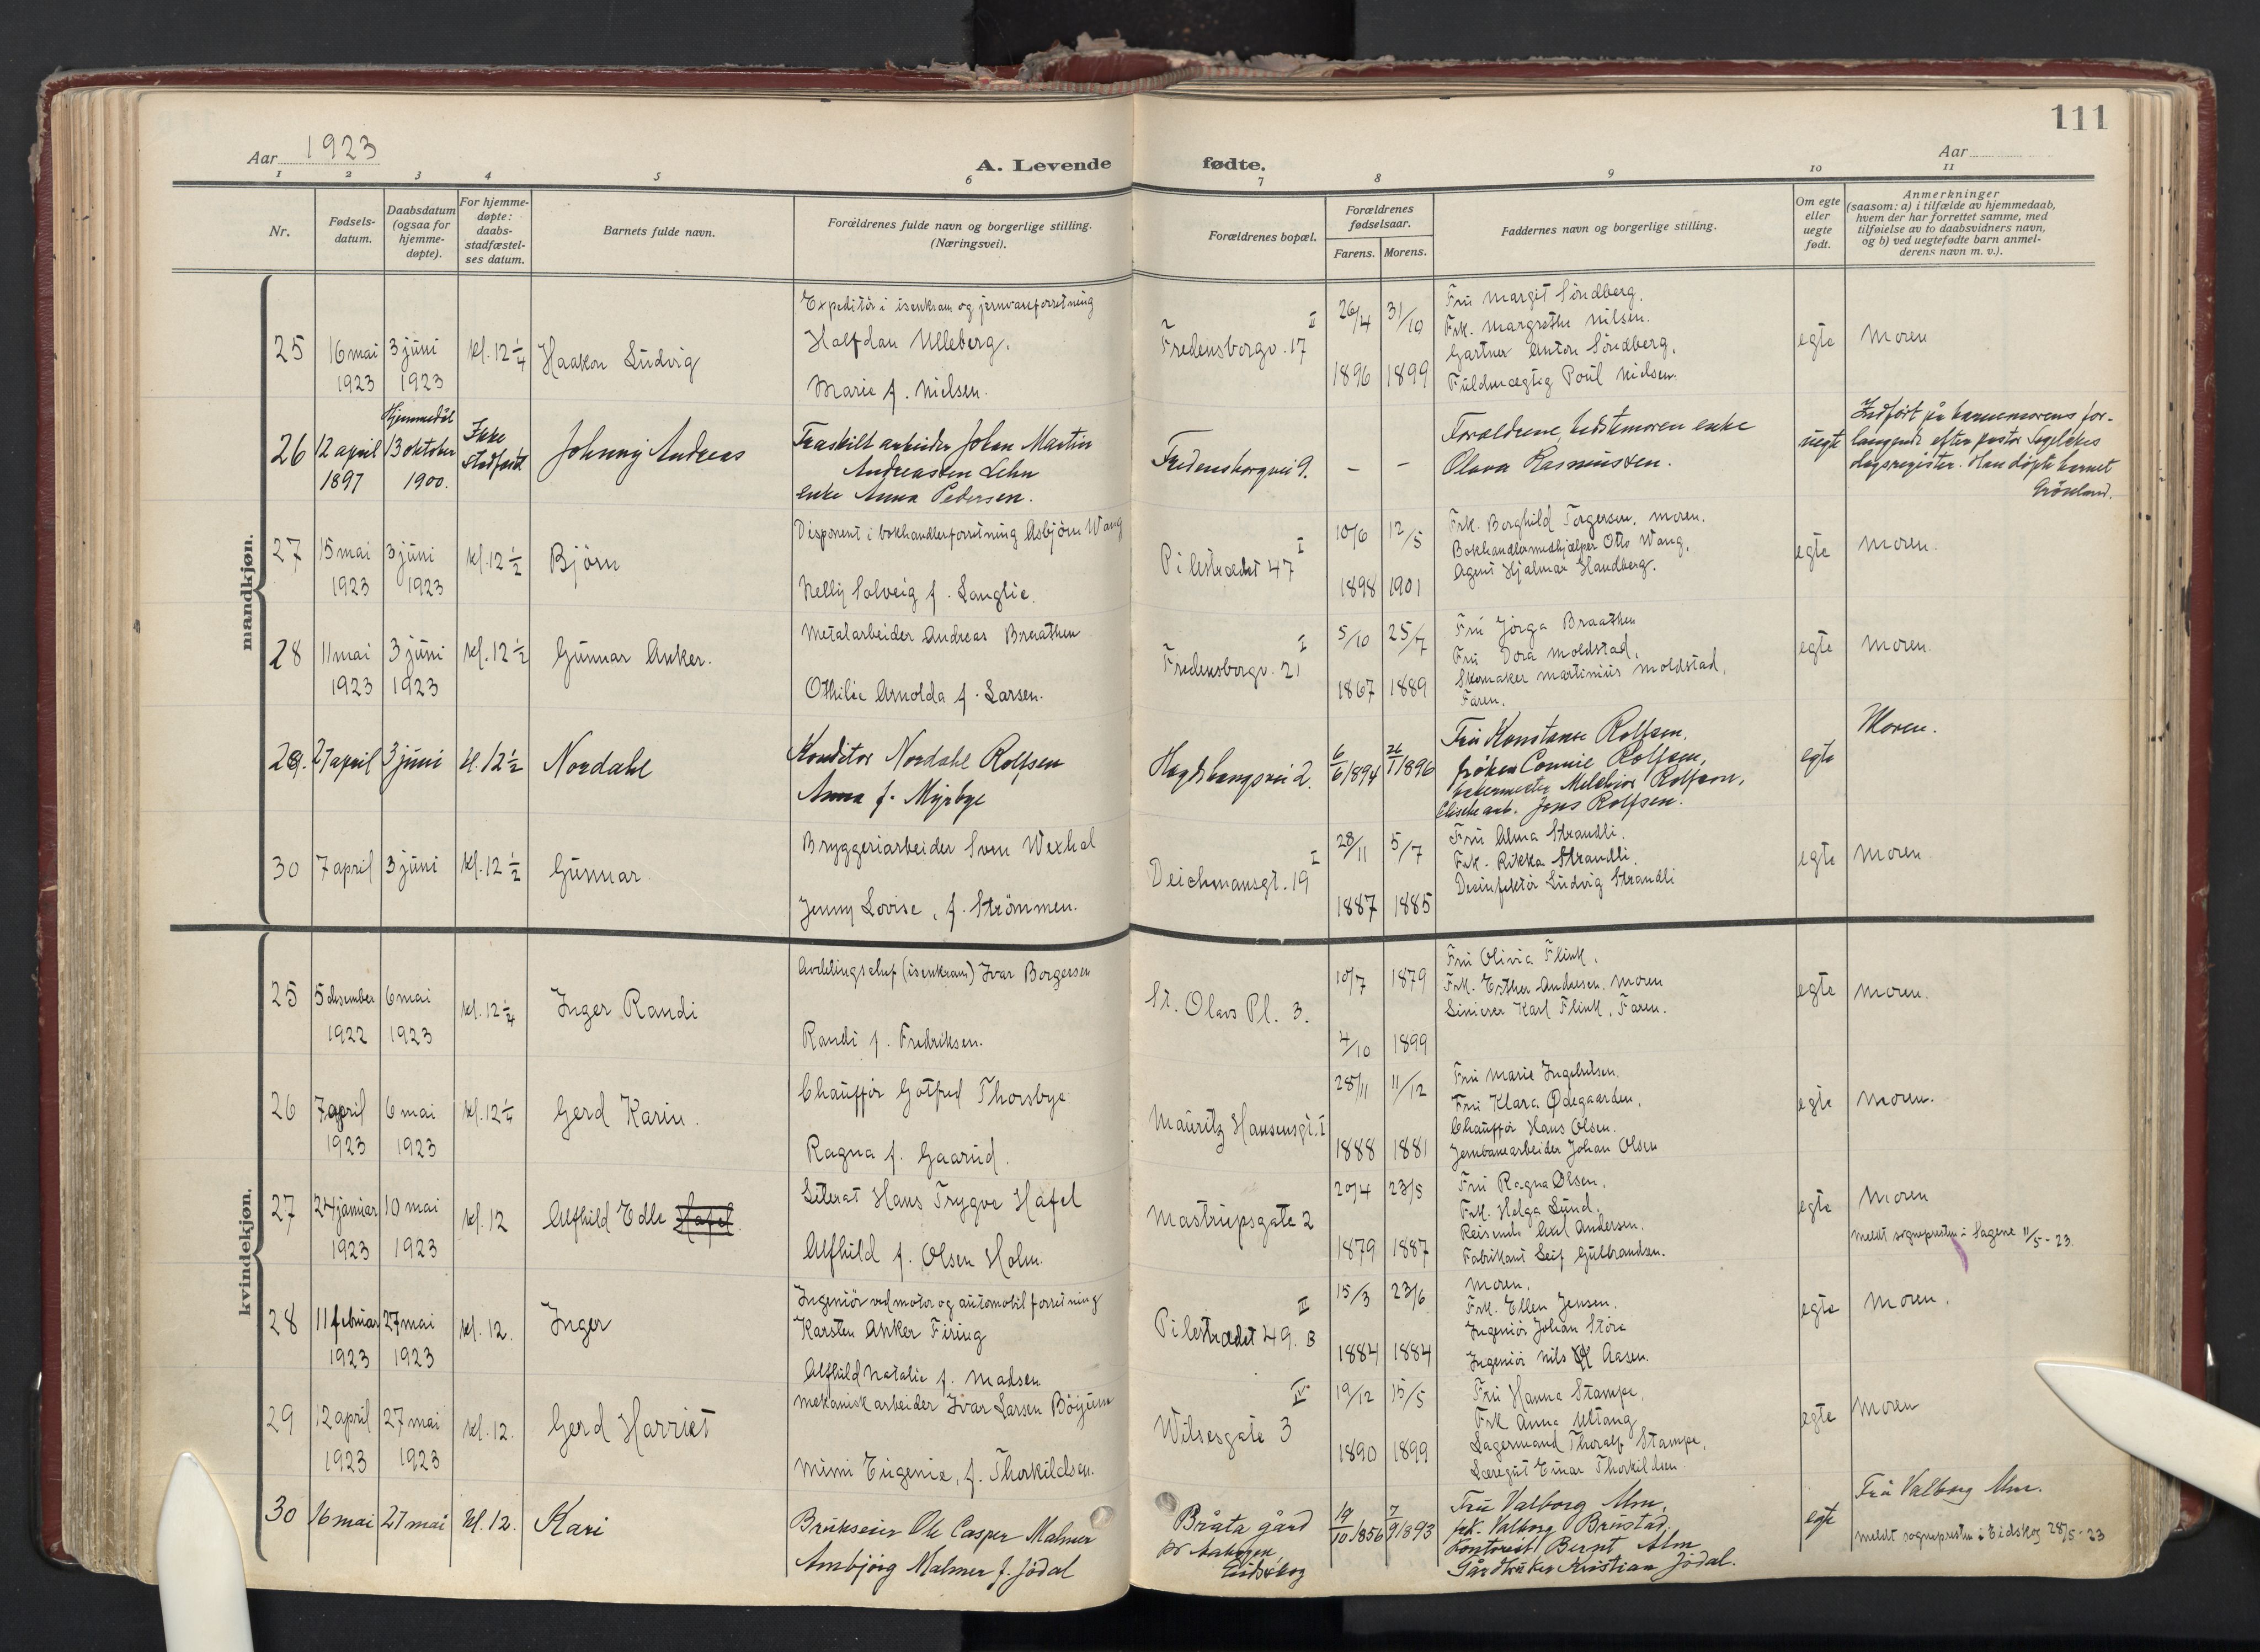 111
Aar 1923
A. Levende fødte.
Aar
1 2 3 4 5 6 7 8 9 10 11
Nr.
Fødsels-
datum.
Daabsdatum
(ogsaa for
hjemme-
døpte).
For hjemme-
døpte:
daabs-
stadfæstel-
ses datum.
Barnets fulde navn.
Forældrenes fulde navn og borgerlige stilling.
(Næringsvei).
Forældrenes bopæl.
Forældrenes
fødselsaar.
Farens. Morens.
Faddernes navn og borgerlige stilling.
Om egte
eller
uegte
født.
Anmerkninger
(saasom: a) i tilfælde av hjemmedaab,
hvem der har forrettet samme, med
tilføielse av to daabsvidners navn,
og b) ved uegtefødte barn anmel-
derens navn m. v.).
mandkjøn.
25
16 mai
1923
3 juni
1923
kl. 12 1/4
Haakon Ludvig
Expeditör i isenkram og jernvareforretning
Halfdan Ulleberg.
Marie f. Nielsen.
II
Fredensborgv. 17
26/4
1896
31/10
1899
Fru Margit Söndberg.
Frk. Margrethe Nilsen.
Gartner Anton Söndberg.
Fuldmægtig Poul Nielsen.
egte
Moren
26
12 april
1897
Hjemmedöbt
13 oktober
1900.
Ikke
stadfæstet
Johnny Andreas
Fraskilt arbeider Johan Martin
Andreassen Lehn
enke Anna Pedersen.
Fredensborgvei 9.
- -
Foreldrene, bedstemoren enke
Olava Rasmussen.
uegte
Indført på barnemorens for-
langende efter pastor
dagsregister. Han döpte barnet
Grönland.
27
15 mai
1923
3 juni
1923
kl. 12 1/2
Björn
Disponent i bokhandlerforretning Asbjörn Wang
Nelly Solveig f. Langlie.
I
Pilestrædet 47
10/6
1898
12/5
1901
Frk. Borghild Torgersen. Moren.
Bokhandlermedhjælper Otto Wang.
Agent Hjalmar Handberg.
egte
Moren.
28
11 mai
1923
3 juni
1923
kl. 12 1/2
Gunnar Anker.
Metalarbeider Andreas Braathen
Othilie Arnolda f. Larsen.
I
Fredensborgv. 21
5/10
1867
25/7
1889
Fru Jörga Braathen
Fru Dora Moldstad.
Skomaker Martinius Moldstad.
Faren.
egte
Moren.
29.
27 april
3 juni
kl. 12 1/2
Nordahl
Konditor Nordahl Rolfsen
Anna f. Myrbye
Hegdehaugsvei 2.
6/6 1894
26/1 1896
Fru Konstance Rolfsen,
frøken Connie Rolfsen,
bakermester Melchior Rolfsen,
Clichearb. Jens Rolfsen.
egte
Moren.
30
7 april
3 juni
kl. 12 1/2
Gunnar
Bryggeriarbeider Sven Wexhal
Jenny Lovise, f. Strömmen.
I
Deichmansgt. 19
28/11
1887
5/7
1885
Fru Alma Strandli.
Frk. Rikka Strandli.
Desinfektör Ludvig Strandli
egte
Moren
kvindekjøn.
25
5 desember
1922
6 mai
1923
kl. 12 1/4
Inger Randi
Avdelingschef (isenkram) Ivar Borgersen
Randi f. Fredriksen.
St. Olavs Pl. 3.
10/7
1879
4/10
1899
Fru Olivia Flink.
Frk. Esther Andresen. Moren
Sinierer Karl Flink. Faren.
egte
Moren.
26
7 april
1923
6 mai
1923
kl. 12 1/4
Gerd Karin.
Chauffør Gotfred Thorsbye
Ragna f. Gaarud.
Mauritz Hansensgt. 1
28/11
1888
11/12
1881
Fru Marie Ingebretsen.
Fru Klara Ødegaarden.
Chauffør Hans Olsen.
Jernbanearbeider Johan Olsen
egte
Moren.
27
24 januar
1923
10 mai
1923
kl. 12
Alfhild Edle Hafel.
Literat Hans Trygve Hafel
Alfhild f. Olsen Holm.
Mastrupsgate 2
20/4
1879
23/5
1887
Fru Ragna Olsen.
Frk. Helga Lund.
Reisende Axel Andersen.
Fabrikant Leif Gulbrandsen.
egte
Moren
meldt sognepresten i Sagene 11/5-23.
28
11 februar
1923
27 mai
1923
kl. 12.
Inger
Ingeniör ved motor og automobil forretning
Karsten Anker Firing
Alfhild Natalie f. Madsen
III
Pilestrædet 49. B
15/3
1884
23/6
1884
Moren.
Frk. Ellen Jensen.
Ingeniör Johan Störe
Ingeniör Nils Aasen.
egte
Moren.
29
12 april
1923
27 mai
1923
kl. 12.
Gerd Harriet
Mekanisk arbeider Ivar Larsen Böyum
Mimi Eugenie, f. Thorkildsen.
IV
Wilsesgate 3
19/12
1890
15/5
1899
Fru Hanna Stampe.
Frk Anna Utang
Lagermand Thoralf Stampe.
Læregut Einar Thorkildsen
egte
Moren
30
16 mai
27 mai
kl. 12.
Kari
Brukseier Ole Casper Malmer
Ambjørg Malmer f. Jödal
Bråta gård
pr
Eidskog
19/10 1856
7/9 1893
Fru Valborg Alm,
frk. Valborg Brustad,
kontorist Bernt Alm
Gårdbruker Kristian Jödal.
egte
Fru Valborg Alm.
meldt sognepresten i Eidskog 28/5-23